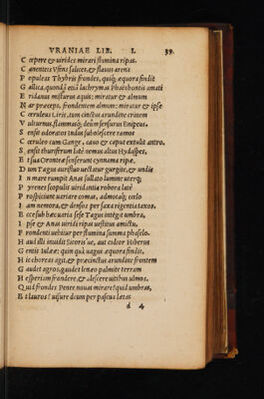 URANIAE LIB. I. 39.
C epere & uirides mirari flumina ripas.
C anentis Vfens salices, & flauus arena
P opuleas Thybris frondes, quiq; æquora findit
G allica, quondã etiã lachrymas Phaethontis amati
E ridanus misturus aquis: miratur & almum
N ar præcepto, frondentem alnum: miratur & ipse
C œruleus Liris, tum cinctus arundine crinem
V ulturnus, flammáq; deum sensurus Enipeus.
S ensit odoratos Indus subolescere ramos
C œruleo cum Gange, cauo & caput extulit antro.
S ensit thuriferum late nemus altus Hydaspes,
E t sua Orontœa senserunt cynnama ripæ.
D um Tagus aurifluo uectatur gurgite, & undis
I n mare rumpit Anas sullato lumine uterq;
P yrenes scopulis uiridantia robora late
P rospiciunt uariare comas, admotáq; cœlo
I am nemora, & densos per saxa rigentia taxos.
E cce sub hæc uaria sese Tagus intigit umbra,
I pse & Anas uiridi ripas uestitus amictu,
P rondenti uehitur per flumina summa phaselo.
H aud illi inuidit Sicoris'ue, aut color Hiberus
G entis Iulææ: quin quà uagus æquora findit
H ic choreas agit, & præcinctus arundine frontem
G audet agros, gaudet lenæo palmite terram
H esperiam frondere, & albescere uitibus ulmos.
Q uid frondes Penee nouas mirare? quid umbras,
E t lauros? uisure deum per pascua lætas
d 4